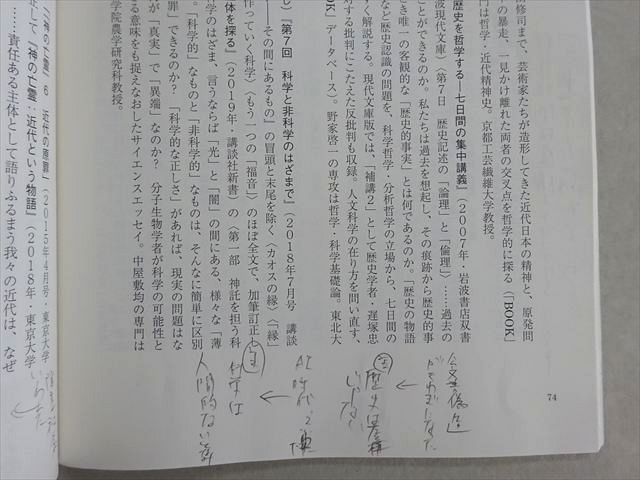 修司まで、芸術家たちが造形してきた近代日本の精神と、原発問
の暴走、一見かけ離れた両者の交叉点を哲学的に探る(「BOOK」
門は哲学・近代精神史。京都工芸繊維大学教授。
歴史を哲学する―七日間の集中講義』(2007年・岩波書店双書
波現代文庫)〈第7日 歴史記述の「論理」と「倫理」〉……過去の
ことができるのか。私たちは過去を想起し、その痕跡から歴史的事
き唯一の客観的な「歴史的事実」とは何であるのか。「歴史の物語
など歴史認識の問題を、科学哲学・分析哲学の立場から、七日間の
く解説する。現代文庫版では、「補講2」として歴史学者・遅塚忠
対する批判にこたえた反批判も収録。人文科学の在り方を問い直す、
OK」データベース)。野家啓一の専攻は哲学・科学基礎論。東北大
』「第7回 科学と非科学のはざまで」(2018年7月号 講談
――その間にあるもの」の冒頭と末尾を除く〈カオスの縁〉〈「縁」
作っていく科学〉〈もう一つの「福音」〉のほぼ全文で、加筆訂正
体を探る』(2019年・講談社新書)の〈第一部 神託を担う科
学のはざま、言うならば「光」と「闇」の間にある、様々な「薄
。「科学的」なものと「非科学的」なものは、そんなに簡単に区別
罪」できるのか?「科学的な正しさ」があれば、現実の問題はな
が「真実」で「異端」なのか? 分子生物学者が科学の可能性と
る意味をも捉えなおしたサイエンスエッセイ。中屋敷均の専門は
学院農学研究科教授。
「神の亡霊」6 近代の原罪」(2015年4月号・東京大学
正して『神の亡霊・近代という物語』(2018年・東京大学
……責任ある主体として語りふるまう我々の近代は、なぜ
74
歴史は
じゃなく
AI時代
科学は
人間的な